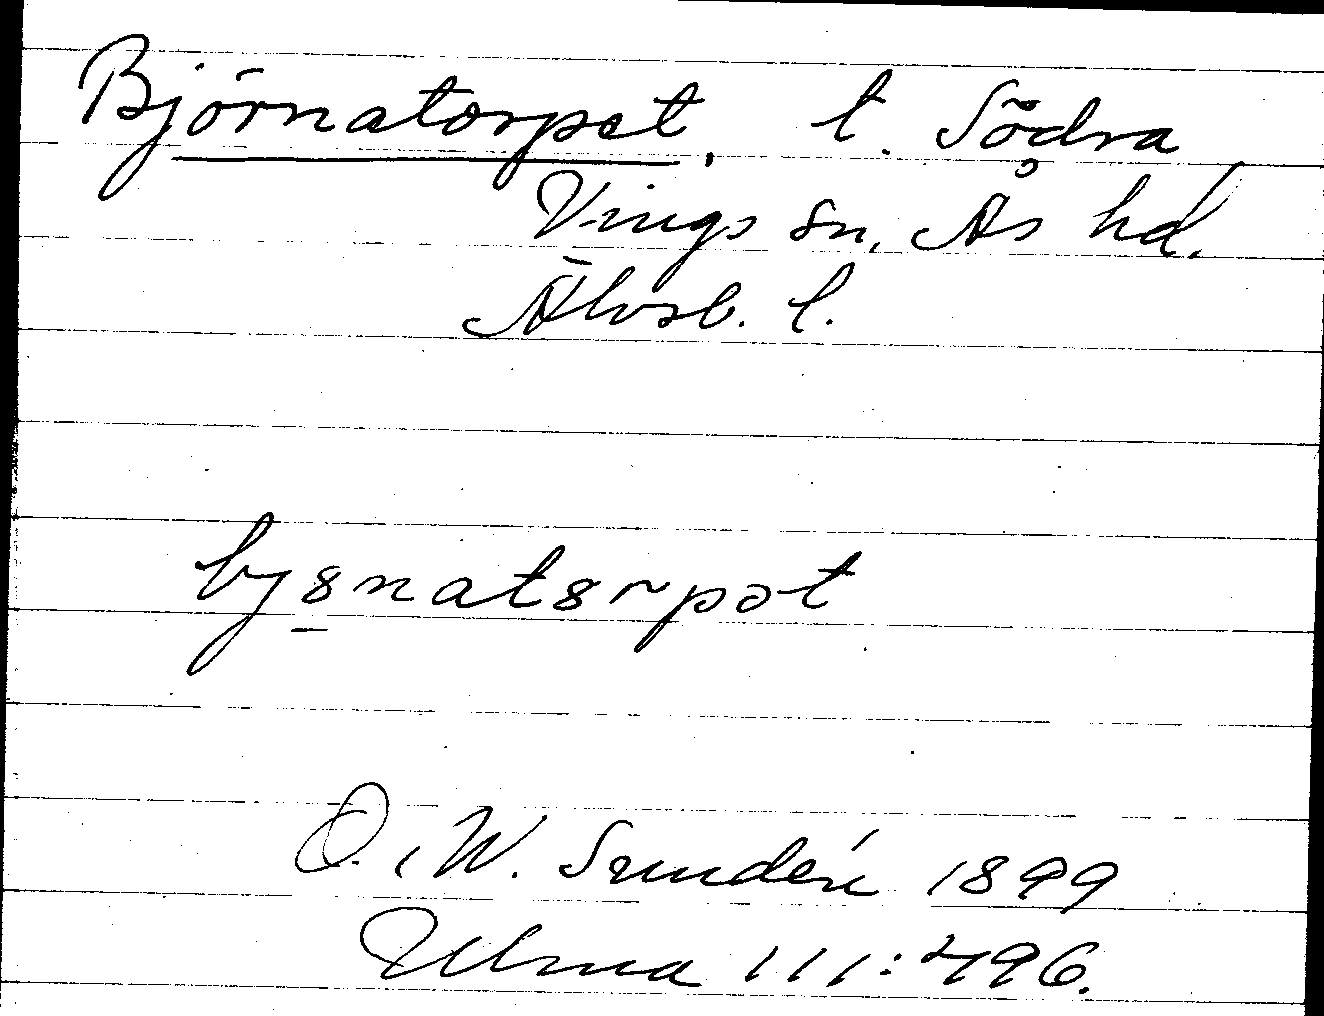 Björnatorpet, t. Södra
Vings sn, Ås hd.
Älvsb. l.
bj8nat8rpət
D. W. Sundén 1899
Ulma 111:496.